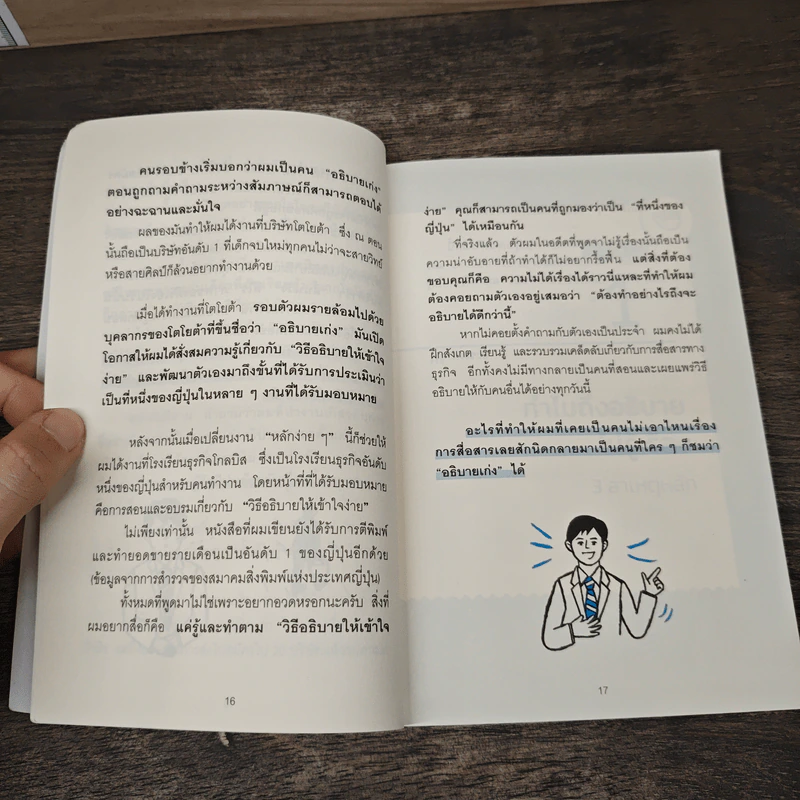 คนรอบข้างเริ่มบอกว่าผมเป็นคน “อธิบายเก่ง”
ตอนถูกถามคำถามระหว่างสัมภาษณ์ก็สามารถตอบได้
อย่างฉะฉานและมั่นใจ
ผลของมันทำให้ผมได้งานที่บริษัทโตโยต้า ซึ่ง ณ ตอน
นั้นถือเป็นบริษัทอันดับ 1 ที่เด็กจบใหม่ทุกคนไม่ว่าจะสายวิทย์
หรือสายศิลป์ก็ล้วนอยากทำงานด้วย
เมื่อได้ทำงานที่โตโยต้า รอบตัวผมรายล้อมไปด้วย
บุคลากรของโตโยต้าที่ขึ้นชื่อว่า “อธิบายเก่ง” มันเปิด
โอกาสให้ผมได้สั่งสมความรู้เกี่ยวกับ “วิธีอธิบายให้เข้าใจ
ง่าย” และพัฒนาตัวเองมาถึงขั้นที่ได้รับการประเมินว่า
เป็นที่หนึ่งของญี่ปุ่นในหลาย ๆ งานที่ได้รับมอบหมาย
หลังจากนั้นเมื่อเปลี่ยนงาน “หลักง่าย ๆ” นี้ก็ช่วยให้
ผมได้งานที่โรงเรียนธุรกิจโกลบิส ซึ่งเป็นโรงเรียนธุรกิจอันดับ
หนึ่งของญี่ปุ่นสำหรับคนทำงาน โดยหน้าที่ที่ได้รับมอบหมาย
คือการสอนและอบรมเกี่ยวกับ “วิธีอธิบายให้เข้าใจง่าย”
ไม่เพียงเท่านั้น หนังสือที่ผมเขียนยังได้รับการตีพิมพ์
และทำยอดขายรายเดือนเป็นอันดับ 1 ของญี่ปุ่นอีกด้วย
(ข้อมูลจากการสำรวจของสมาคมสิ่งพิมพ์แห่งประเทศญี่ปุ่น)
ทั้งหมดที่พูดมาไม่ใช่เพราะอยากอวดหรอกนะครับ สิ่งที่
ผมอยากสื่อก็คือ แค่รู้และทำตาม “วิธีอธิบายให้เข้าใจ
16
ง่าย” คุณก็สามารถเป็นคนที่ถูกมองว่าเป็น “ที่หนึ่งของ
ญี่ปุ่น” ได้เหมือนกัน
ที่จริงแล้ว ตัวผมในอดีตที่พูดจาไม่รู้เรื่องนั้นถือเป็น
ความน่าอับอายที่ถ้าทำได้ก็ไม่อยากรื้อฟื้น แต่สิ่งที่ต้อง
ขอบคุณก็คือ ความไม่ได้เรื่องได้ราวนี่แหละที่ทำให้ผม
ต้องคอยถามตัวเองอยู่เสมอว่า “ต้องทำอย่างไรถึงจะ
อธิบายได้ดีกว่านี้”
หากไม่คอยตั้งคำถามกับตัวเองเป็นประจำ ผมคงไม่ได้
ฝึกสังเกต เรียนรู้ และรวบรวมเคล็ดลับเกี่ยวกับการสื่อสารทาง
ธุรกิจ อีกทั้งคงไม่มีทางกลายเป็นคนที่สอนและเผยแพร่วิธี
อธิบายให้กับคนอื่นได้อย่างทุกวันนี้
อะไรที่ทำให้ผมที่เคยเป็นคนไม่เอาไหนเรื่อง
การสื่อสารเลยสักนิดกลายมาเป็นคนที่ใคร ๆ ก็ชมว่า
“อธิบายเก่ง” ได้
17